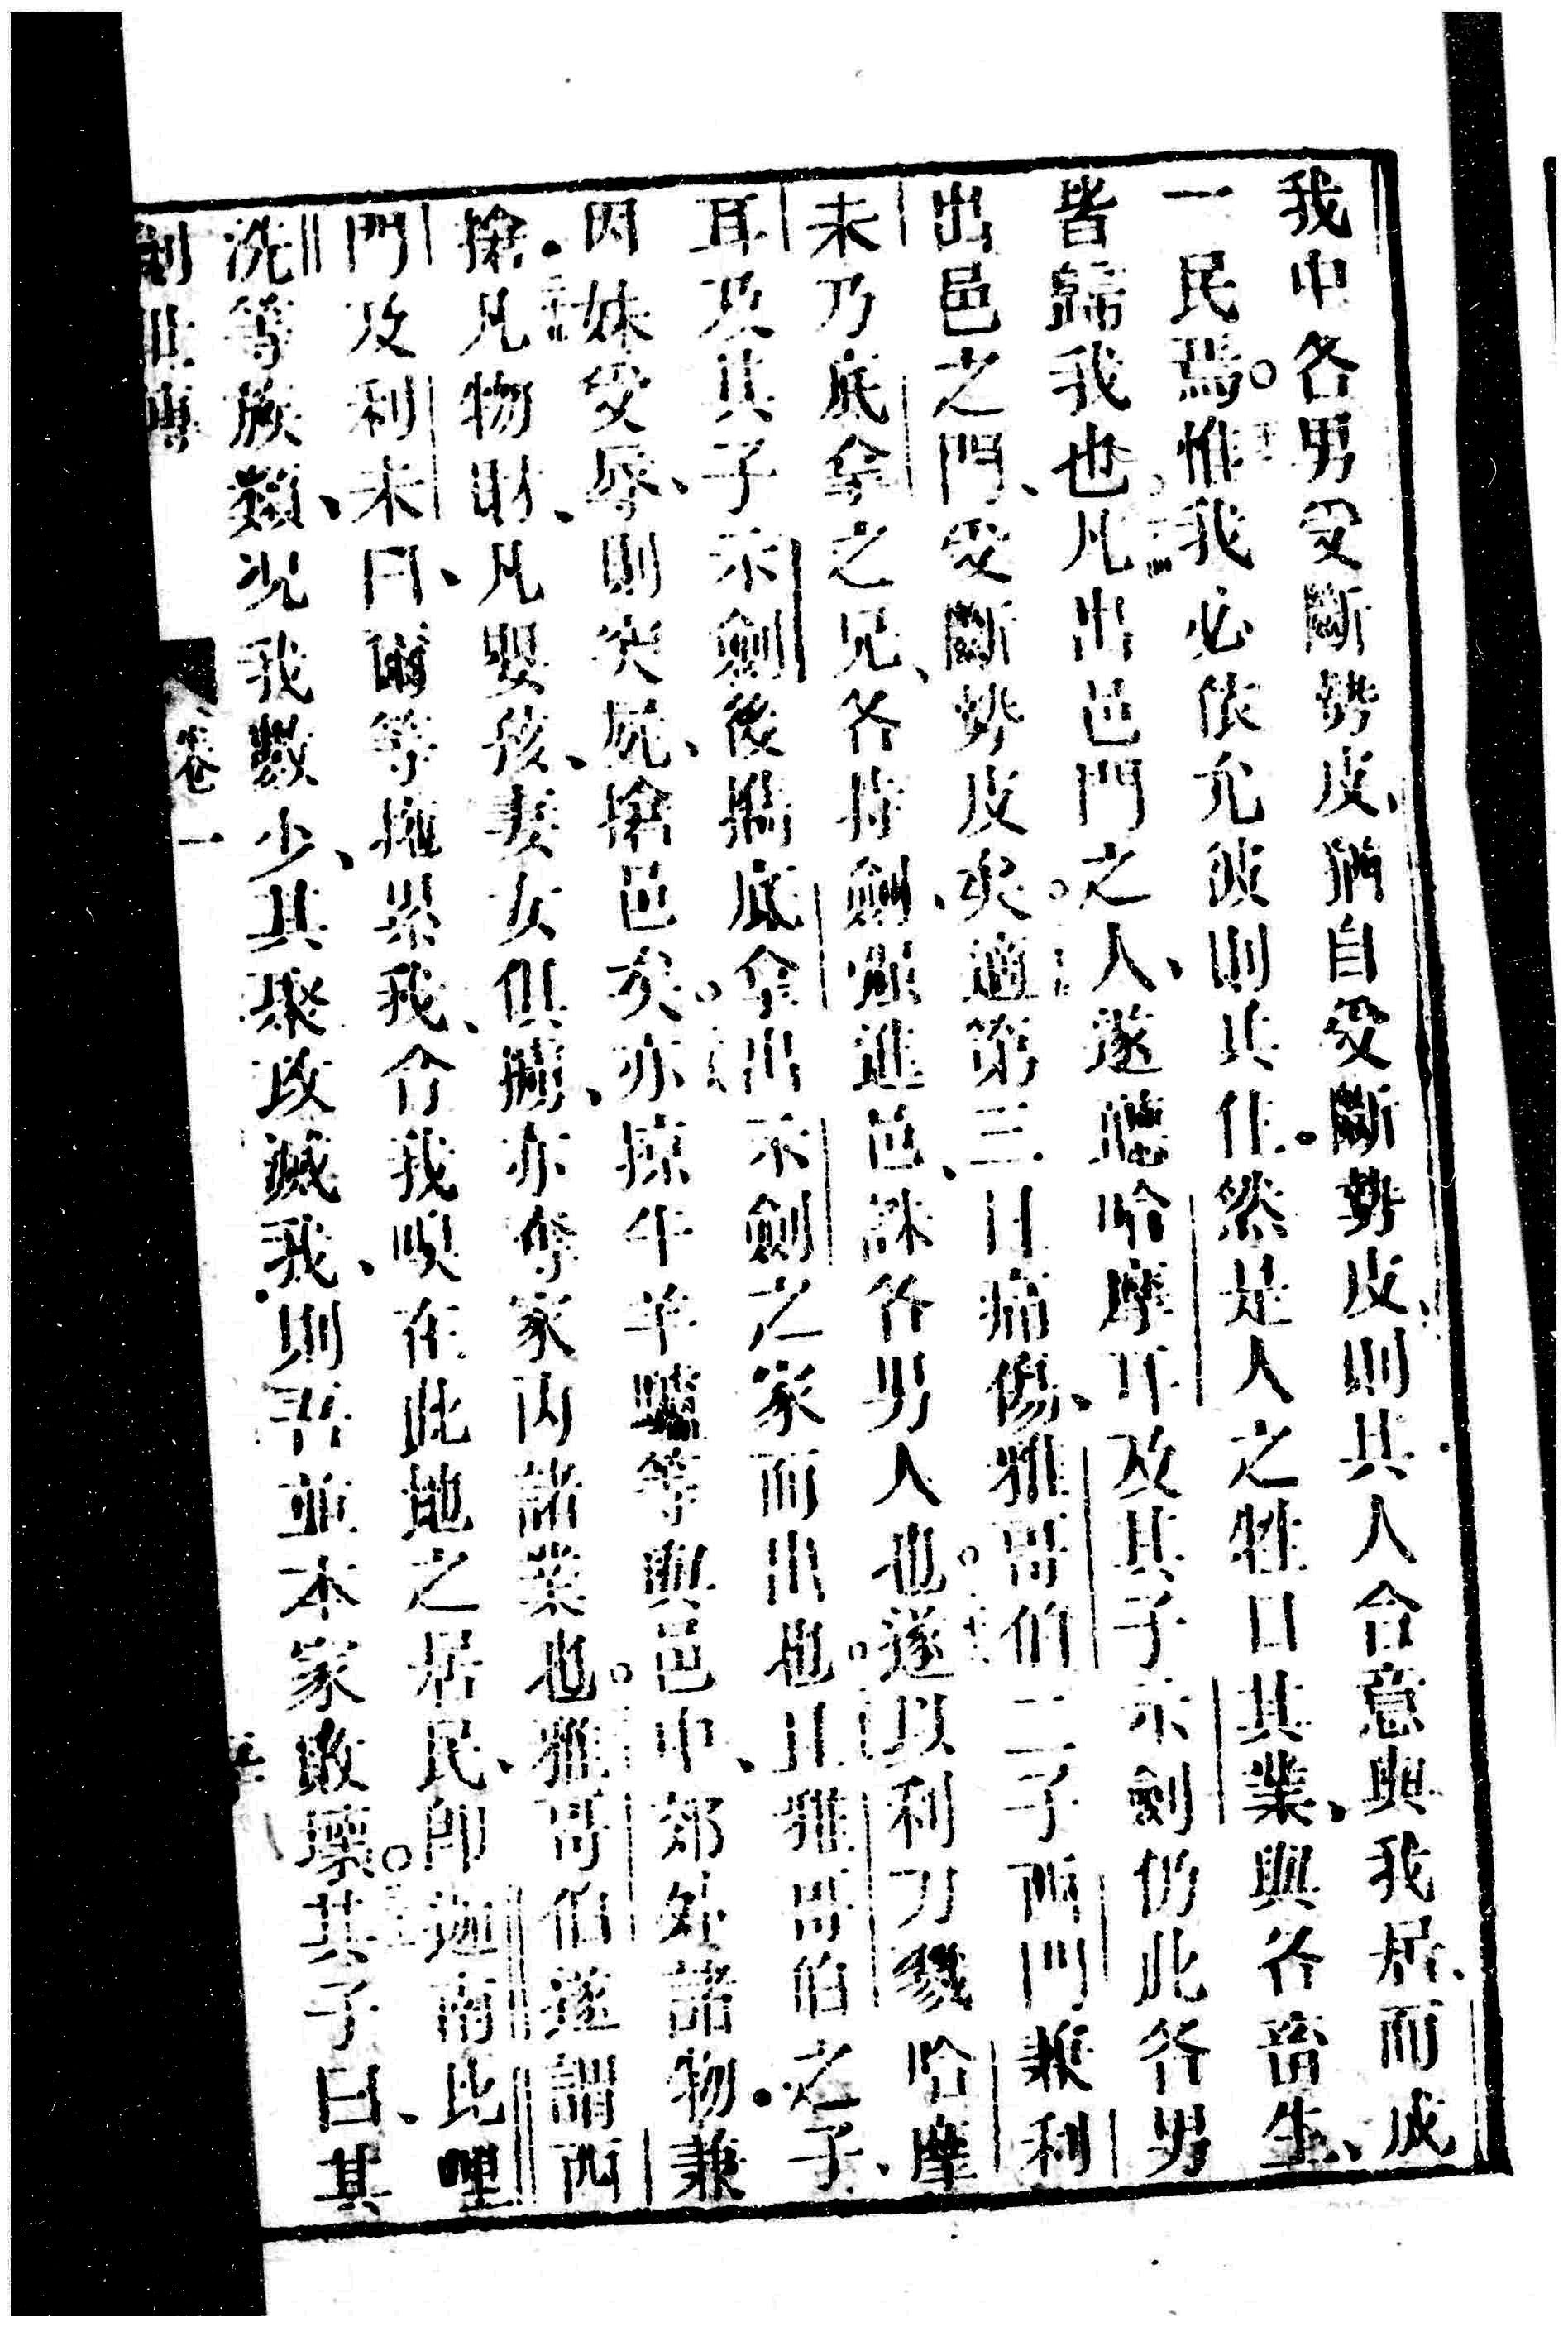 我中各男受斷勢皮、猶自受斷勢皮、則其人合意與我居、而成
一民焉。惟我必依允彼則其住。然是人之牲口其業、與各畜生、
皆歸我也、凡出邑門之人、遂聽哈摩耳及其子示劍仍此各男
出邑之門、受斷勢皮矣。適第三日痛傷、雅哥伯二子西門兼利
未乃底拿之兄、各持劍、強進邑、誅各男人也。遂以利刀戮哈摩
耳及其子示劍後攜底拿出示劍之家而出也。且雅哥伯之子、
因妹受辱、則突屍、搶邑矣。亦掠牛羊驢等與邑中、郊外諸物。兼
搶凡物財、凡嬰孩、妻女俱擄、亦奪家內諸業也。雅哥伯遂謂西
門及利未曰、爾等拖累我、令我臭在此地之居民、即迦南比哩
洗等族類、況我數少、其聚攻滅我、則吾並本家敗壞。其子曰、其
創世傳
卷一